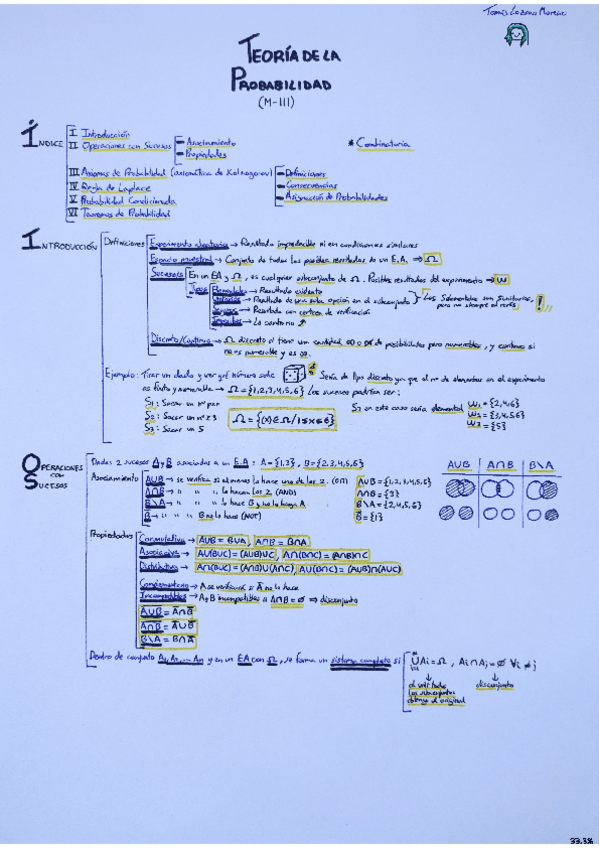 Tomás Lozano Moreno
TEORÍA DE LA
PROBABILIDAD
(M-III)
ÍNDICE
I Introducción
II Operaciones con Sucesos
- Asociamiento
- Propiedades
* Combinatoria
III Axiomas de Probabilidad (axiomática de Kolmogorov)
- Definiciones
- Consecuencias
- Asignación de Probabilidades
IV Regla de Laplace
V Probabilidad Condicionada
VI Teoremas de Probabilidad
INTRODUCCIÓN
Definiciones
Experimento aleatorio → Resultado impredecible ni en condiciones similares
Espacio muestral → Conjunto de todos los posibles resultados de un E.A. ⇒ Ω
Suceso(s) En un EA y Ω, es cualquier subconjunto de Ω. Posibles resultados del experimento → ω
Tipos
Elementales → Resultado
→ Resultado de una sola opción en el subconjunto
→ Resultado con certeza de verificación
→ Lo contrario
Discreto/Continuo → Ω discreto si tiene una cantidad de posibilidades pero numerables, y continuo si
no es numerable y es ∞.
Ejemplo: Tirar un dado y ver qué número sale
Sería de tipo discreto ya que el nº de elementos en el experimento
es finito y numerable → Ω = {1,2,3,4,5,6} Los sucesos podrían ser:
S₁: Sacar un nº par
S₂: Sacar un nº ≥ 3
S₃: Sacar un 5
Ω = {(x) ∈ Ω / 1≤x≤6}
S₃ en este caso sería elemental
ω₁ = {2,4,6}
ω₂ = {3,4,5,6}
ω₃ = {5}
OPERACIONES
con
SUCESOS
Dados 2 sucesos A y B asociados a un E.A: A = {1,3}, B = {2,3,4,5,6}
Asociamiento
A∪B → se verifica si al menos lo hace uno de los 2. (OR)
A∩B → " " " lo hacen los 2 (AND)
B\A → " " " lo hace B y no lo haga A
B̄ → " " " B no lo hace (NOT)
A∪B = {1,2,3,4,5,6}
A∩B = {3}
B\A = {2,4,5,6}
B̄ = {1}
A∪B A∩B B\A
Propiedades
Conmutativa → A∪B = B∪A, A∩B = B∩A
Asociativa → A∪(B∪C) = (A∪B)∪C, A∩(B∩C) = (A∩B)∩C
Distributiva → A∩(B∪C) = (A∩B)∪(A∩C), A∪(B∩C) = (A∪B)∩(A∪C)
Complementario → A se verifica si Ā no lo hace
Incompatibles → A y B incompatibles si A∩B = ∅ ⇒ disconjunto
A∪B = Ā∩B̄
A∩B = Ā∪B̄
B\A = B∩Ā
Dentro de conjunto A₁, A₂, ... Aₙ y en un EA con Ω, se forma un sistema completo si
∪Ai = Ω, Ai∩Aj = ∅ ∀i ≠ j
↓ ↓
al unir todos disconjunto
los subconjuntos
obtengo el original
33.3%